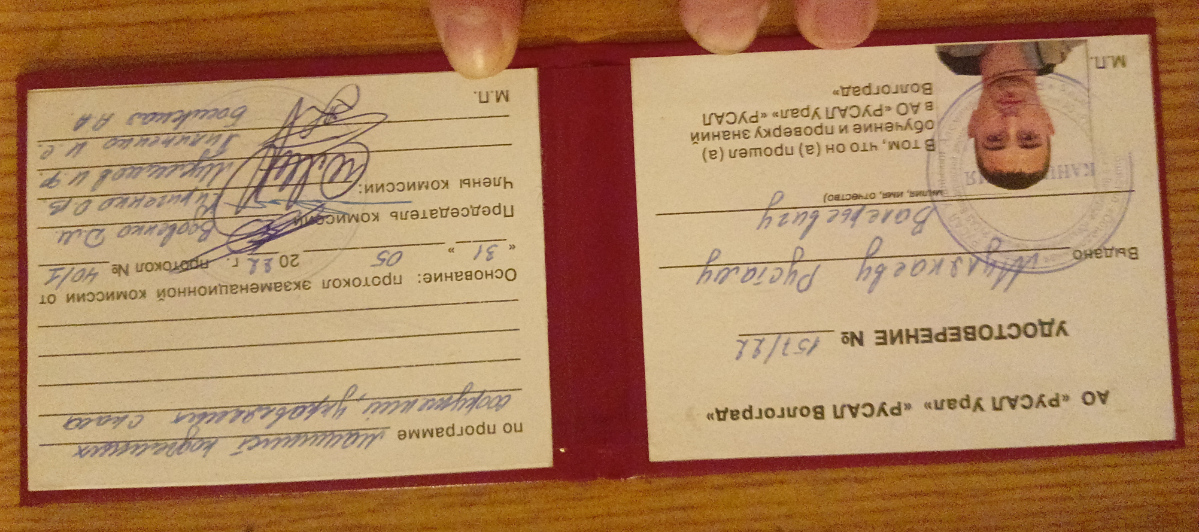 АО «РУСАЛ Урал» «РУСАЛ Волгоград»
УДОСТОВЕРЕНИЕ № 157/22
Выдано Рустаму
Валерьевичу
милия, имя, отчество)
В том, что он (а) прошел (а)
обучение и проверку знаний
в АО «РУСАЛ Урал» «РУСАЛ
Волгоград»
М.П.
по программе машинист подъемных
сооружений, управляемых с пола
Основание: протокол экзаменационной комиссии от
« 31 » 05 2022 г. протокол № 40/1
Председатель комиссии Вдовенко Д.И.
Члены комиссии: Кириченко О.В.
И Ф
И. С.
А А
М.П.